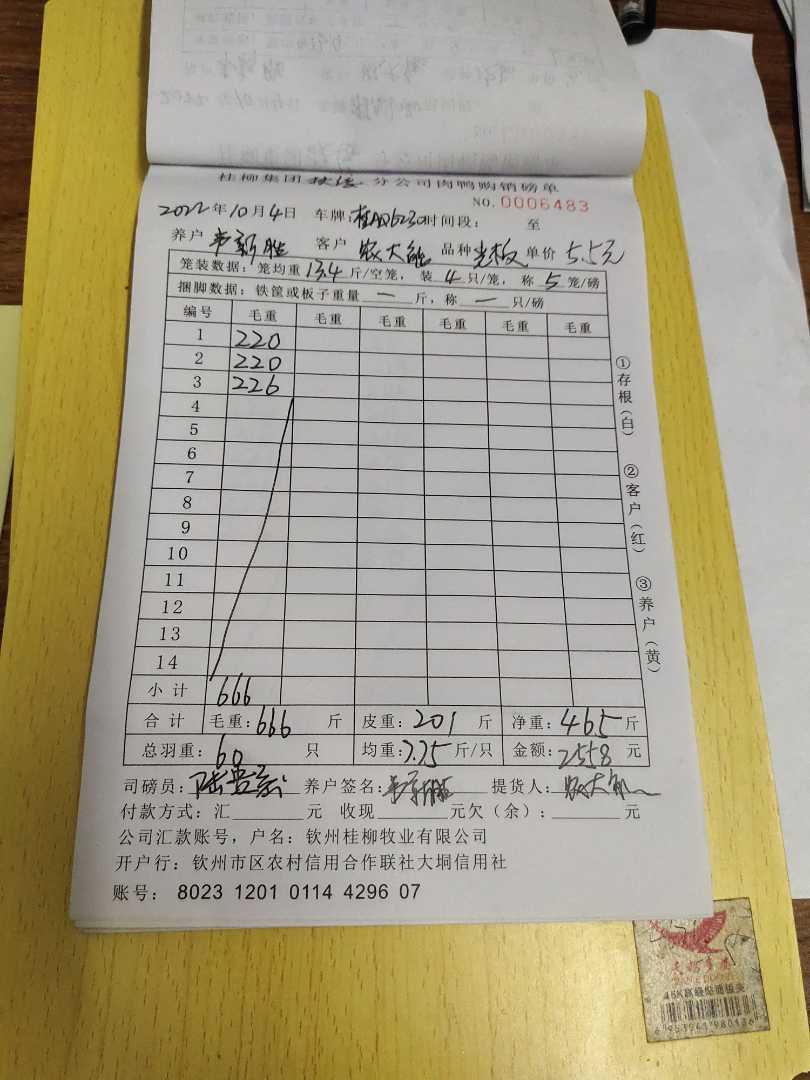 桂柳集团 扶绥 分公司肉鸭购销磅单
NO. 0006483
2022年10月4日 车牌: 时间段: 至
养户 韦新胜 客户 农大能 品种 光板 单价 5.5元
笼装数据: 笼均重 13.4 斤/空笼, 装 4 只/笼, 称 5 笼/磅
捆脚数据: 铁筐或板子重量 — 斤, 称 — 只/磅
编号 毛重 毛重 毛重 毛重 毛重 毛重
1 220
2 220
3 226
4
5
6
7
8
9
10
11
12
13
14
小计 666
合计 毛重: 666 斤 皮重: 201 斤 净重: 465 斤
总羽重: 60 只 均重: 7.75 斤/只 金额: 2558 元
司磅员: 养户签名: 韦新胜 提货人: 农大能
付款方式: 汇 元 收现 元欠(余): 元
公司汇款账号, 户名: 钦州桂柳牧业有限公司
开户行: 钦州市区农村信用合作联社大垌信用社
账号: 8023 1201 0114 4296 07
①存根(白)
②客户(红)
③养户(黄)